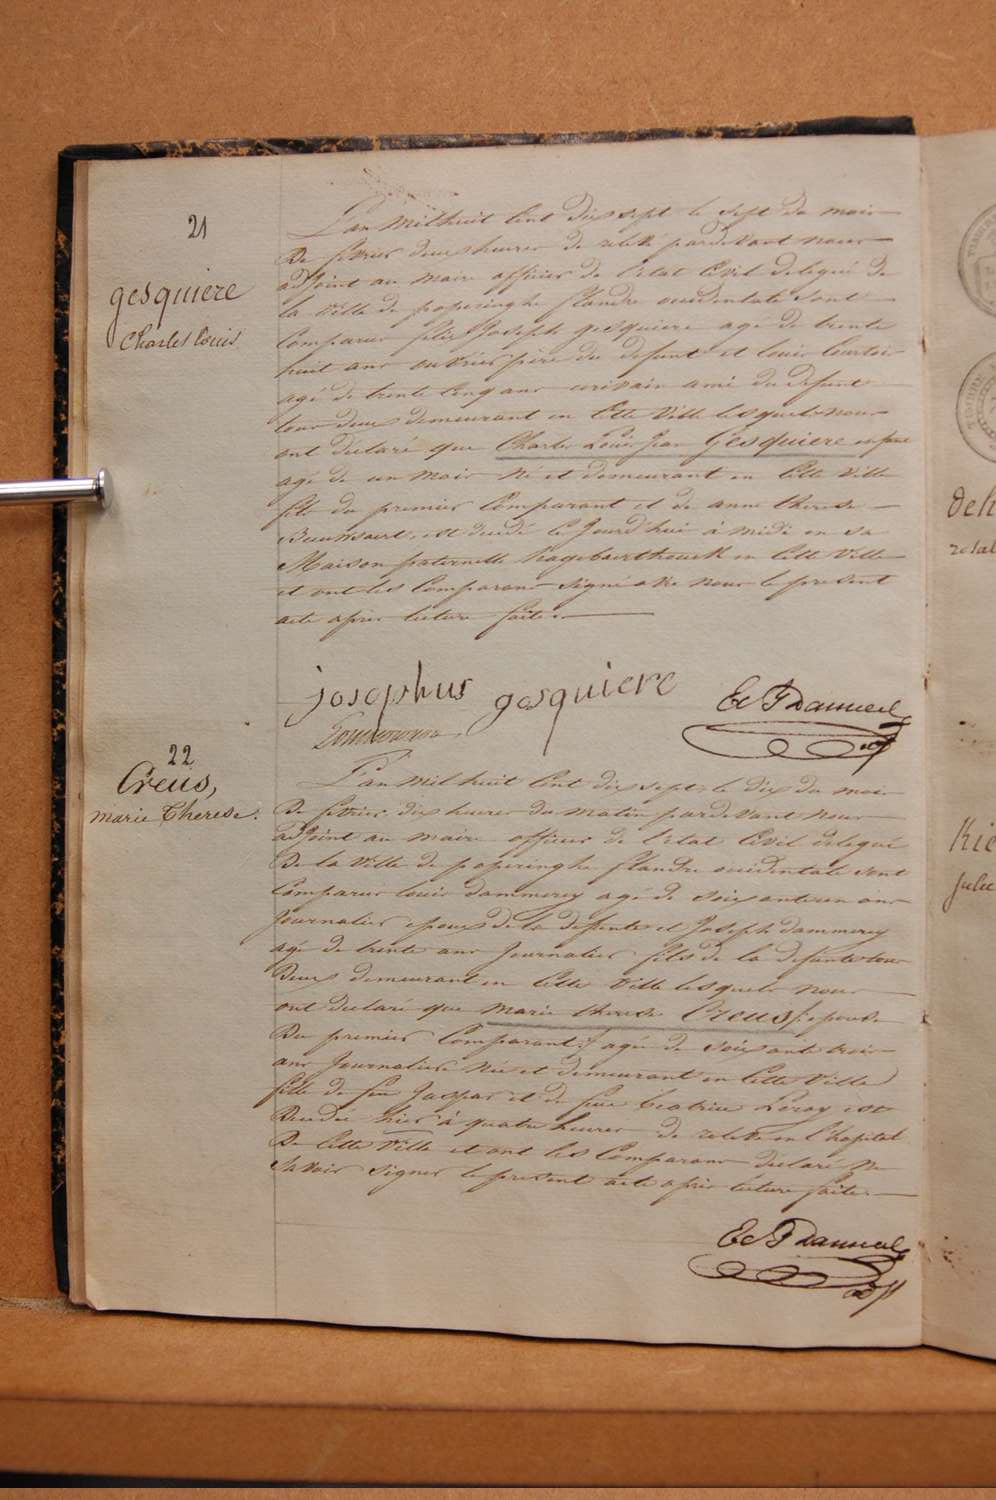 21
gesquiere
Charles Louis
L'an mil huit Cent dix sept le sept du mois
de fevrier deux heures de relevé pardevant nous
adjoint au maire officier de l'etat Civil delegué de
la ville de poperinghe flandre occidentale sont
Comparus Joseph gesquiere agé de trente
huit ans ouvrier père du defunt et louis Courtois
agé de trente Cinq ans ecrivain ami du defunt
tous deux demeurant en Cette Ville lesquels nous
ont declaré que Charles Louis Jean Gesquiere
agé de un mois né et demeurant en Cette Ville
fils du premier Comparant et de anne therese
est decedé le Jourd'hui à midi en sa
Maison paternelle en Cette Ville
et ont les Comparans signé avec nous le present
acte après lecture faite.
josephus gesquiere
22
Creus,
marie Therese.
L'an mil huit Cent dix sept le dix du mois
de fevrier dix heures du matin pardevant nous
adjoint au maire officier de l'etat Civil delegué
de la Ville de poperinghe flandre occidentale sont
Comparus louis dammerey agé de soixante un ans
Journalier epoux de la defunte et Joseph dammerey
agé de trente ans Journalier fils de la defunte tous
deux demeurant en Cette Ville lesquels nous
ont declaré que marie therese Creus epouse
du premier Comparant agée de soixante trois
ans Journaliere née et demeurant en Cette Ville
fille de feu Jaspar et de feue beatrice Leroy est
decedée hier à quatre heures de relevé en l'hopital
de Cette Ville et ont les Comparans declaré ne
savoir signer le present acte après lecture faite.